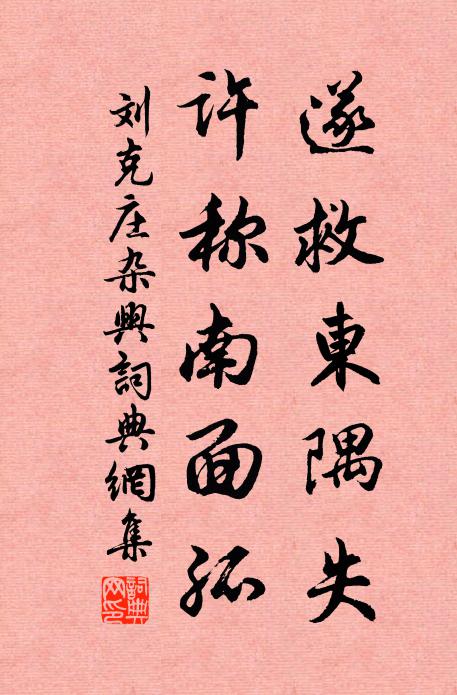 遂救東隅失
许称南面孤
刘克庄杂興詞典網集
詞典网印